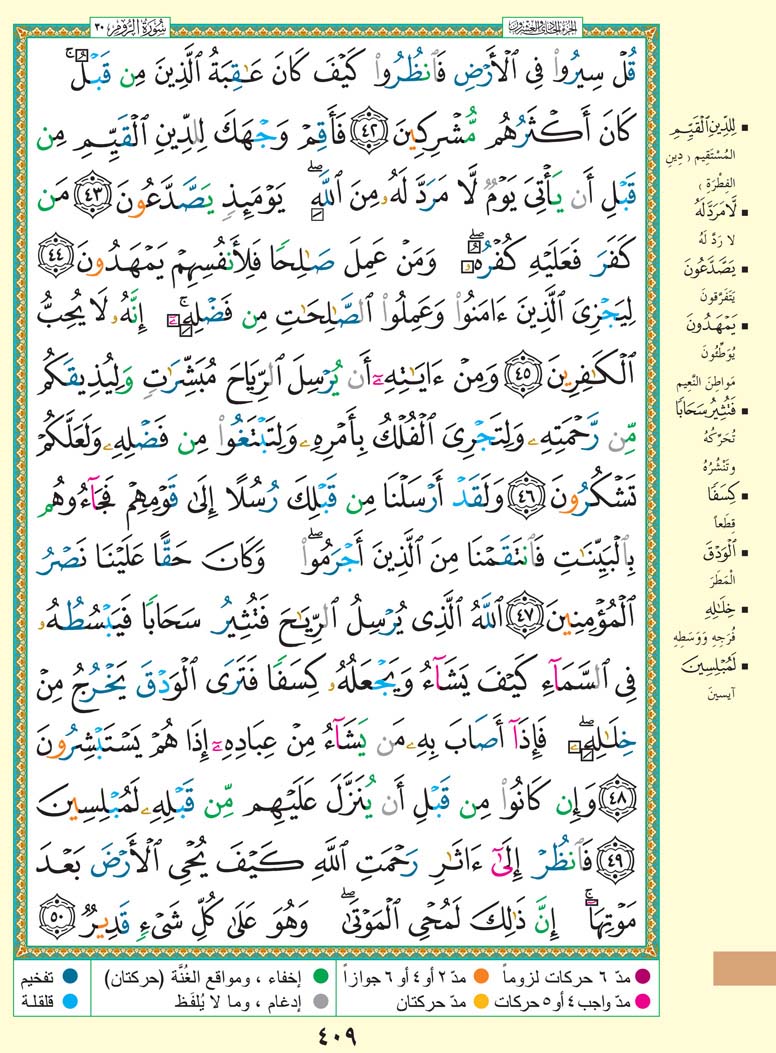 سُورَةُ الرُّومِ ٣٠
الجزء الحادي والعشرون
قُلْ سِيرُوا۟ فِى ٱلْأَرْضِ فَٱنظُرُوا۟ كَيْفَ كَانَ عَـٰقِبَةُ ٱلَّذِينَ مِن قَبْلُ ۚ
كَانَ أَكْثَرُهُم مُّشْرِكِينَ ٤٢ فَأَقِمْ وَجْهَكَ لِلدِّينِ ٱلْقَيِّمِ مِن
قَبْلِ أَن يَأْتِىَ يَوْمٌ لَّا مَرَدَّ لَهُۥ مِنَ ٱللَّهِ ۖ يَوْمَئِذٍ يَصَّدَّعُونَ ٤٣ مَن
كَفَرَ فَعَلَيْهِ كُفْرُهُۥ ۖ وَمَنْ عَمِلَ صَـٰلِحًا فَلِأَنفُسِهِمْ يَمْهَدُونَ ٤٤
لِيَجْزِىَ ٱلَّذِينَ ءَامَنُوا۟ وَعَمِلُوا۟ ٱلصَّـٰلِحَـٰتِ مِن فَضْلِهِۦٓ ۚ إِنَّهُۥ لَا يُحِبُّ
ٱلْكَـٰفِرِينَ ٤٥ وَمِنْ ءَايَـٰتِهِۦٓ أَن يُرْسِلَ ٱلرِّيَاحَ مُبَشِّرَٰتٍ وَلِيُذِيقَكُم
مِّن رَّحْمَتِهِۦ وَلِتَجْرِىَ ٱلْفُلْكُ بِأَمْرِهِۦ وَلِتَبْتَغُوا۟ مِن فَضْلِهِۦ وَلَعَلَّكُمْ
تَشْكُرُونَ ٤٦ وَلَقَدْ أَرْسَلْنَا مِن قَبْلِكَ رُسُلًا إِلَىٰ قَوْمِهِمْ فَجَآءُوهُم
بِٱلْبَيِّنَـٰتِ فَٱنتَقَمْنَا مِنَ ٱلَّذِينَ أَجْرَمُوا۟ ۖ وَكَانَ حَقًّا عَلَيْنَا نَصْرُ
ٱلْمُؤْمِنِينَ ٤٧ ٱللَّهُ ٱلَّذِى يُرْسِلُ ٱلرِّيَـٰحَ فَتُثِيرُ سَحَابًا فَيَبْسُطُهُۥ
فِى ٱلسَّمَآءِ كَيْفَ يَشَآءُ وَيَجْعَلُهُۥ كِسَفًا فَتَرَى ٱلْوَدْقَ يَخْرُجُ مِنْ
خِلَـٰلِهِۦ ۖ فَإِذَآ أَصَابَ بِهِۦ مَن يَشَآءُ مِنْ عِبَادِهِۦٓ إِذَا هُمْ يَسْتَبْشِرُونَ
٤٨ وَإِن كَانُوا۟ مِن قَبْلِ أَن يُنَزَّلَ عَلَيْهِم مِّن قَبْلِهِۦ لَمُبْلِسِينَ
٤٩ فَٱنظُرْ إِلَىٰٓ ءَاثَـٰرِ رَحْمَتِ ٱللَّهِ كَيْفَ يُحْىِ ٱلْأَرْضَ بَعْدَ
مَوْتِهَآ ۚ إِنَّ ذَٰلِكَ لَمُحْىِ ٱلْمَوْتَىٰ ۖ وَهُوَ عَلَىٰ كُلِّ شَىْءٍ قَدِيرٌ ٥٠
▪ لِلدِّينِ ٱلْقَيِّمِ
المُسْتَقِيمِ ( دِينِ
الفِطْرَةِ )
▪ لَّا مَرَدَّ لَهُ
لا رَدَّ لَهُ
▪ يَصَّدَّعُونَ
يَتَفَرَّقونَ
▪ يَمْهَدُونَ
يُوَطِّئُونَ
مَواطِنَ النَّعيم
▪ فَتُثِيرُ سَحَابًا
تُحَرِّكُهُ
وتَنْشُرُهُ
▪ كِسَفًا
قِطَعاً
▪ ٱلْوَدْقَ
الْمَطَرَ
▪ خِلَـٰلِهِ
فُرَجِهِ وَوَسَطِهِ
▪ لَمُبْلِسِينَ
آيسينَ
مدّ ٦ حركات لزوماً
مدّ ٢ أو ٤ أو ٦ جوازاً
إخفاء ، ومواقع الغُنَّة (حركتان)
تفخيم
مدّ واجب ٤ أو ٥ حركات
مدّ حركتان
إدغام ، وما لا يُلفَظ
قلقلة
٤٠٩